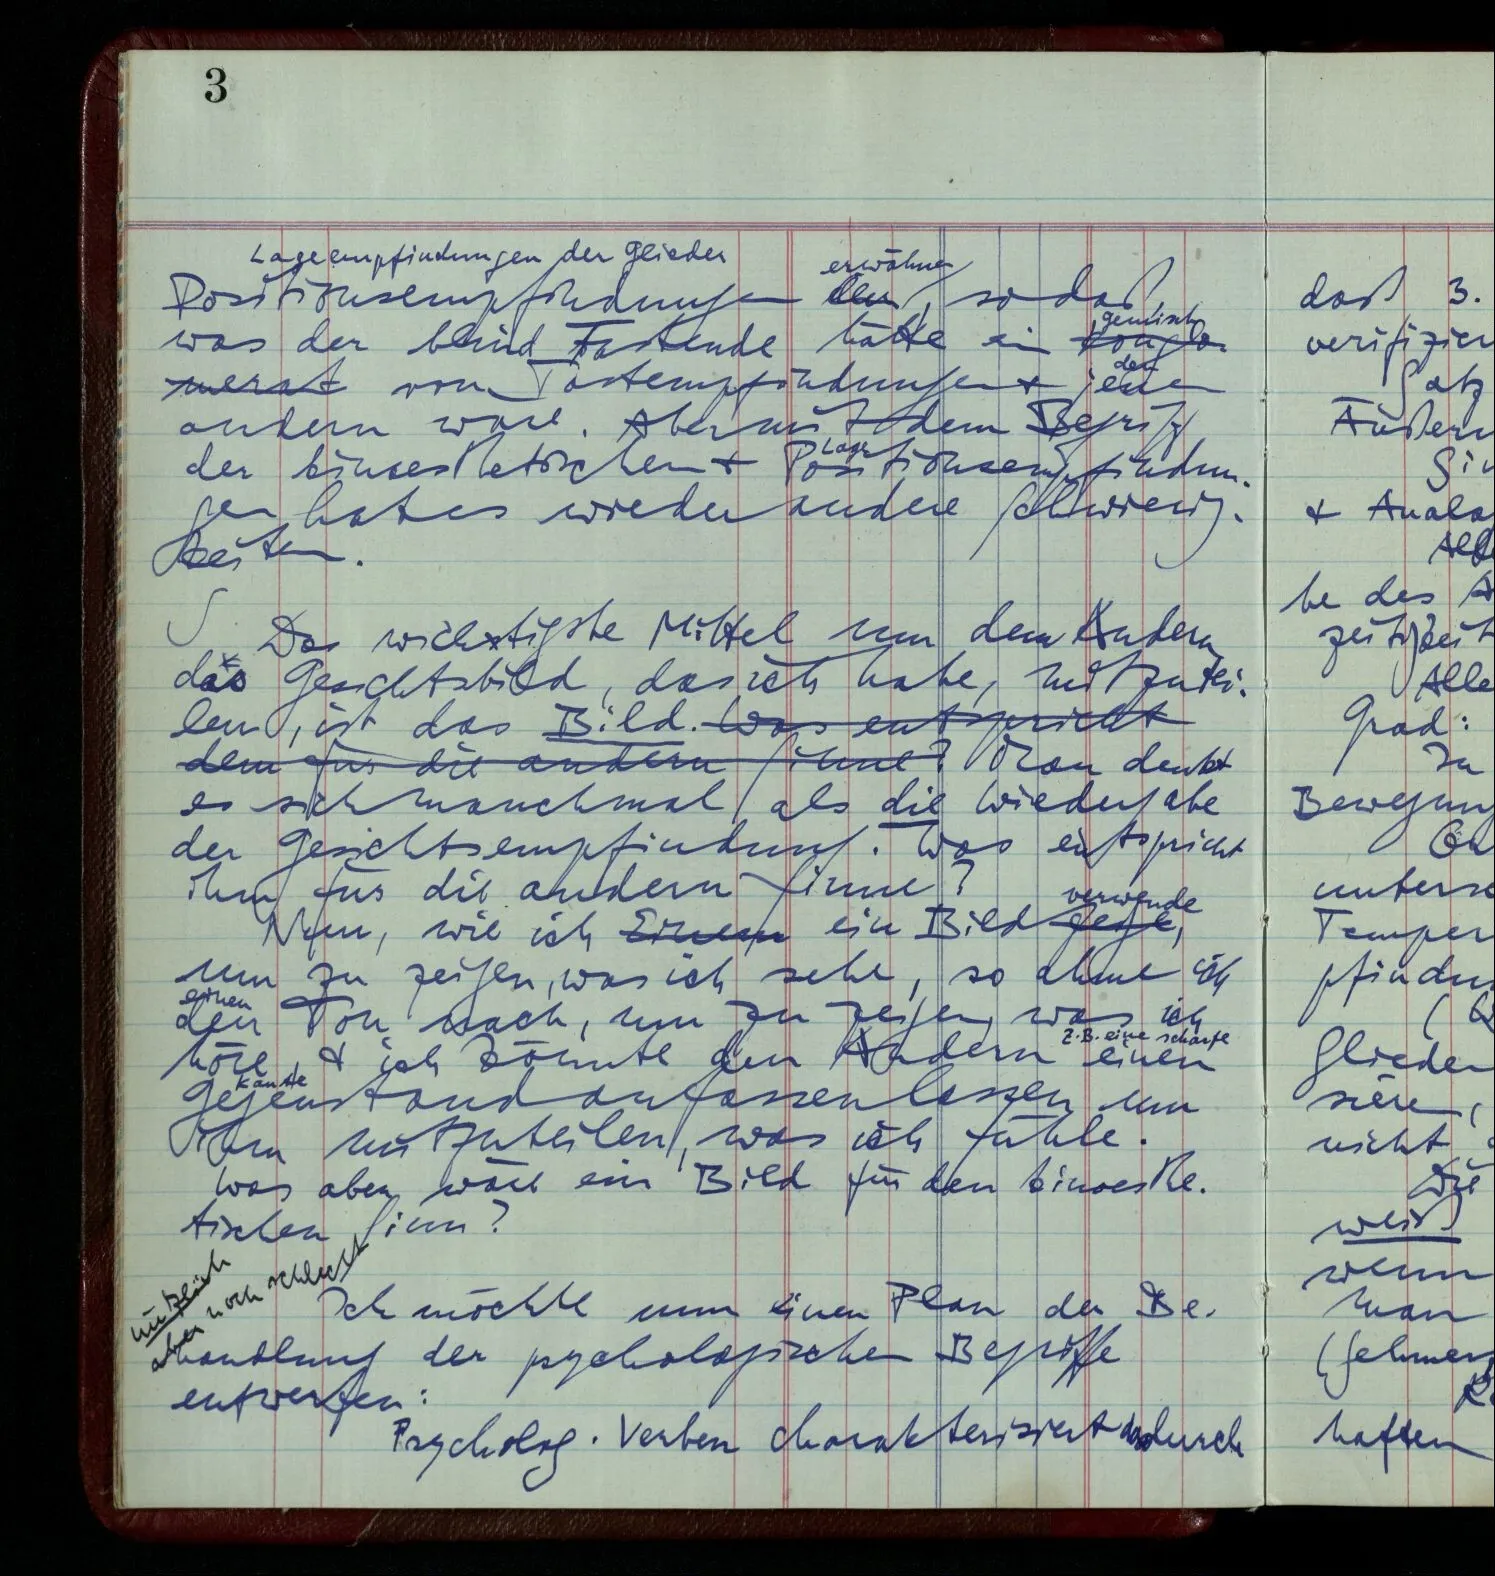 3
Lageempfindungen der Glieder
erwähnen
Positionsempfindungen , so daß,
gemisch
was der blind Tastende hätte ein Konglo
den
merat von Tastempfindungen & jenen
andern wäre. Aber mit dem Begriff
Lage
der kinaesthetischen & Positionsempfindun-
gen hat es wieder andere Schwierig-
keiten.
∫
Das wichtigste Mittel um dem Andern
das Gesichtsbild, das ich habe, mitzutei-
len, ist das Bild. Was entspricht
dem für die andern Sinne? Man denkt
es sich manchmal als die Wiedergabe
der Gesichtsempfindung. Was entspricht
ihm für die andern Sinne?
verwende
Nun, wie ich Einem ein Bild zeige,
um zu zeigen, was ich sehe, so ahme ich
einen
den Ton nach, um zu zeigen, was ich
z.B. eine scharfe
höre, & ich könnte den Andern einen
Kante
Gegenstand anfassen lassen um
ihm mitzuteilen, was ich fühle.
Was aber wäre ein Bild für den kinaesthe-
tischen Sinn?
nützlich
aber noch schlecht
Ich möchte nun einen Plan der Be-
handlung der psychologischen Begriffe
entwerfen:
Psycholog. Verben charakterisiert dadurch
daß 3.
verifizier
Satz
Äußern
Sin
& Analo
be des A
zeitigkeit
Alle
Grad:
In
Bewegung
unters
Temper
pfindu
Glieder
siere,
nicht
Wie
weiß
wenn
man
(Schmer
haften